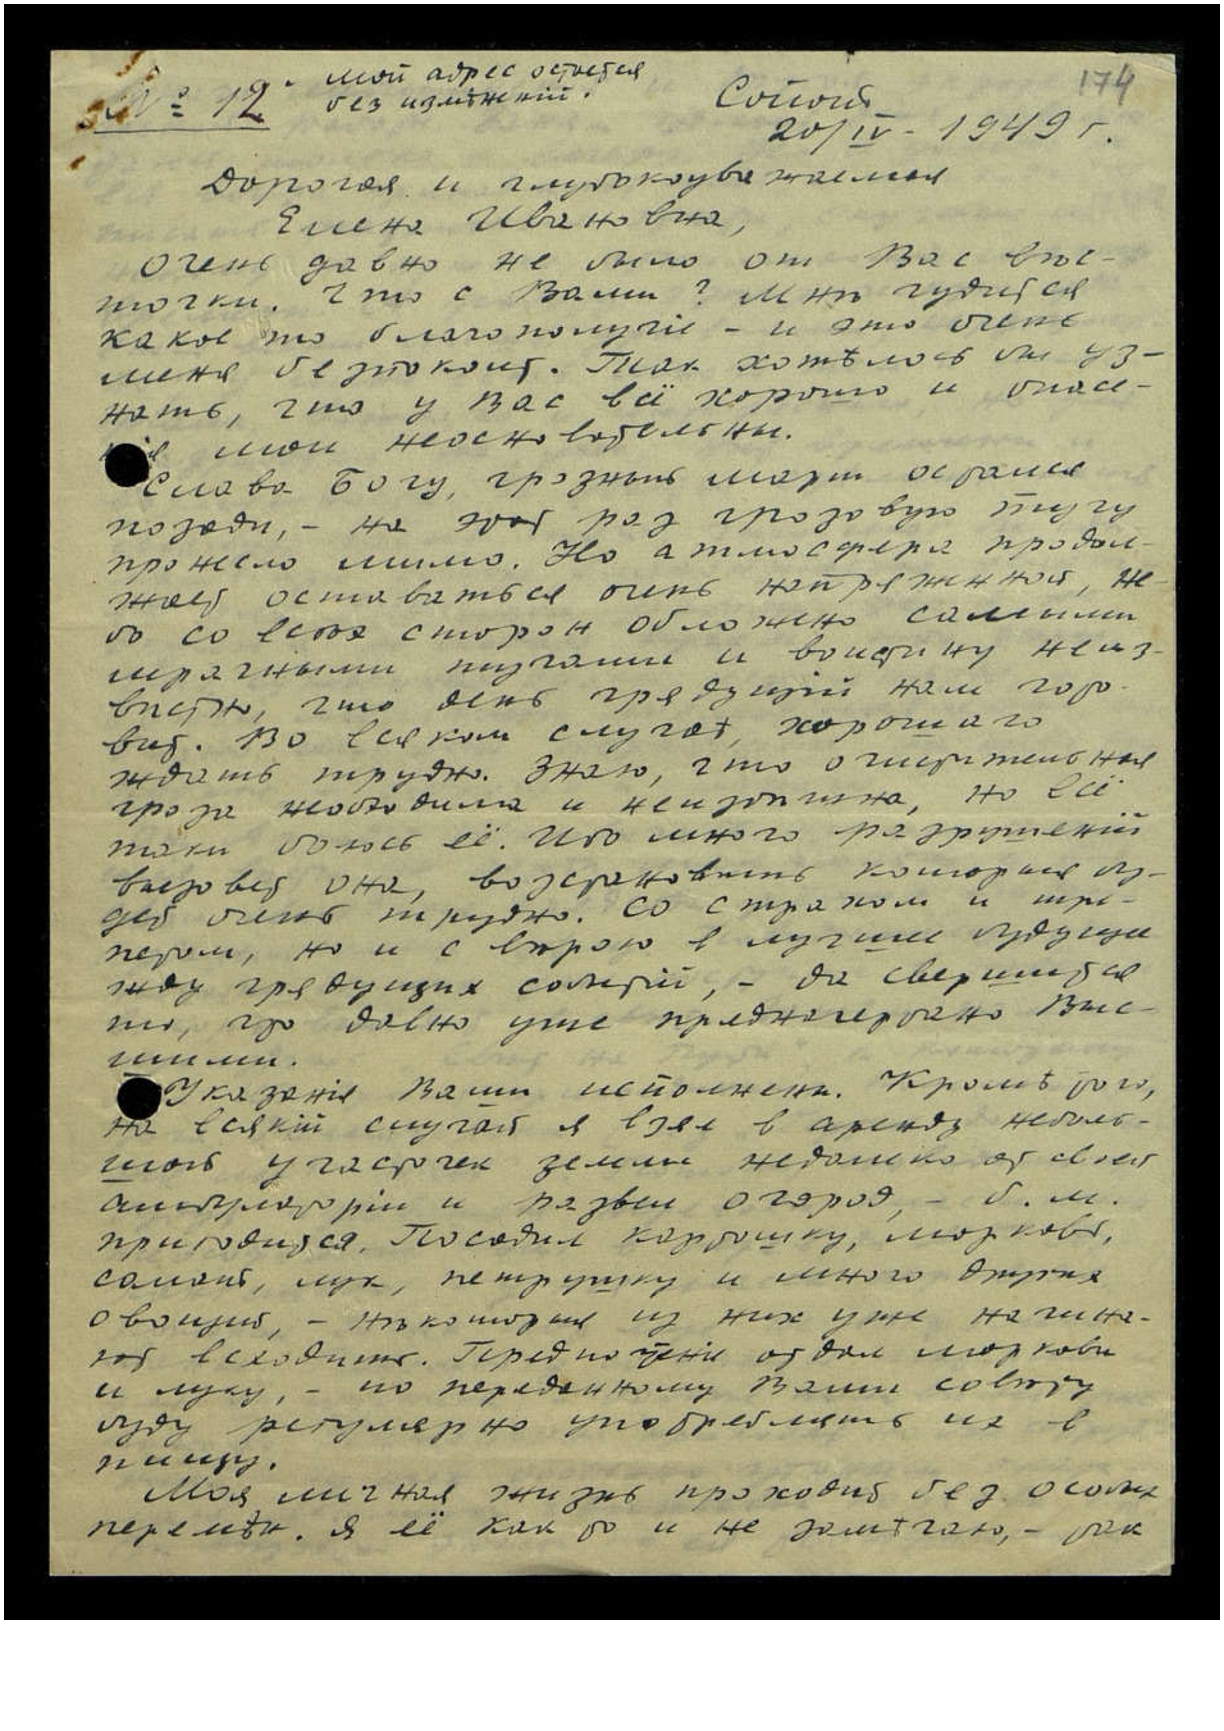 № 12
мой адрес остается
без измѣненій.
174
Сопот
20/IV - 1949 г.
Дорогая и глубокоуважаемая
Елена Ивановна,
Очень давно не было от Вас вѣс-
точки. Что с Вами? Мнѣ чудится
какое то благополучіе - и это очень
меня безпокоит. Так хотѣлось бы уз-
нать, что у Вас всё хорошо и опасе-
нія мои неосновательны.
Слава Богу, грозный март остался
позади, - на этот раз грозовую тучу
пронесло мимо. Но атмосфера продол-
жает оставаться очень напряженной, не-
бо со всѣх сторон обложено самыми
мрачными тучами и воистину неиз-
вѣстно, что день грядущій нам гото-
вит. Во всяком случаѣ, хорошаго
ждать трудно. Знаю, что очистительная
гроза необходима и неизбѣжна, но всё
таки боюсь её. Ибо много разрушеній
вызовет она, возстановить которыя бу-
дет очень трудно. Со страхом и тре-
петом, но и с вѣрою в лучшее будущее
жду грядущих событій, - да свершится
то, что давно уже предначертано Выс-
шими.
Указанія Ваши исполнены. Кромѣ того,
на всякій случай я взял в аренду неболь-
шой участочек земли недалеко от своей
амбулаторіи и развел огород, - б. м.
пригодится. Посадил картошку, морковь,
салат, лук, петрушку и много других
овощей, - нѣкоторыя из них уже начина-
ют всходить. Предпочтеніе отдал моркови
и луку, - по переданному Вами совѣту
буду регулярно употреблять их в
пищу.
Моя личная жизнь проходит без особых
перемѣн. Я её как то и не замѣчаю, - так